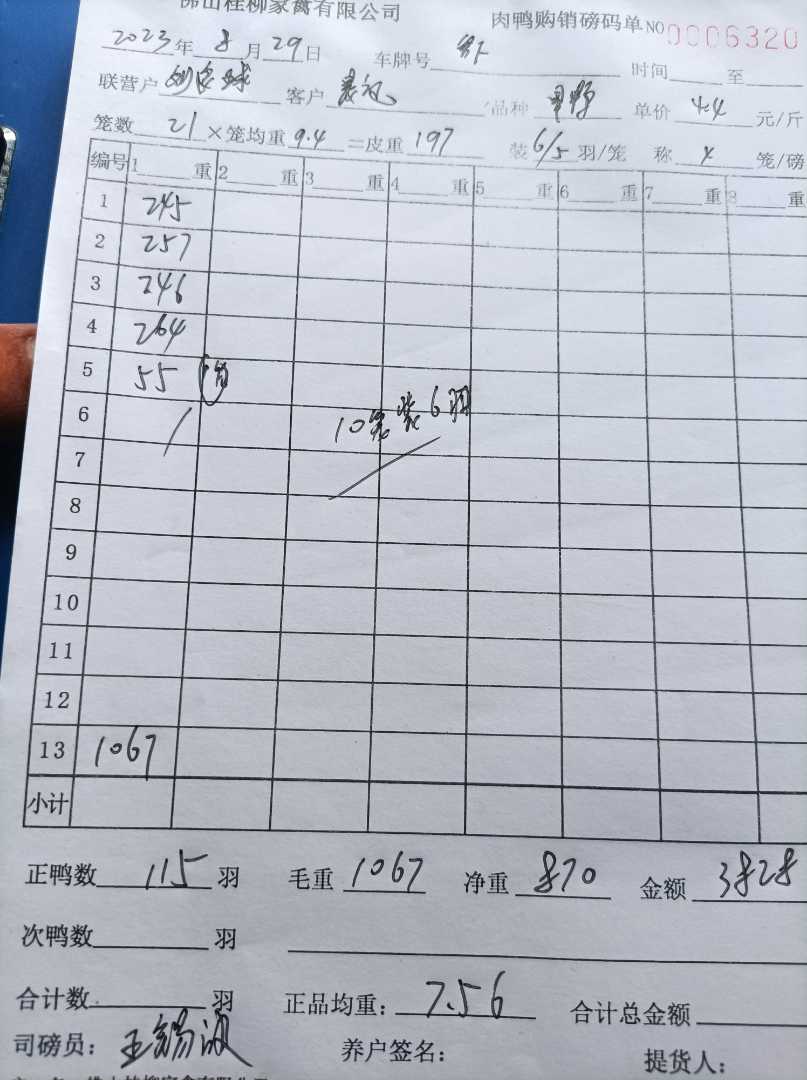 佛山桂柳家禽有限公司 肉鸭购销磅码单 NO 0006320
2023年 8月 29日 车牌号 时间 至
联营户 客户 品种 单价 4.4 元/斤
笼数 21 ×笼均重 9.4 =皮重 197 装 6/5 羽/笼 称 4 笼/磅
编号 1 重 2 重 3 重 4 重 5 重 6 重 7 重 8 重
1 245
2 257
3 246
4 264
5 55
6 10笼装6羽
7
8
9
10
11
12
13 1067
小计
正鸭数 115 羽 毛重 1067 净重 870 金额 3828
次鸭数 羽
合计数 羽 正品均重: 7.56 合计总金额
司磅员: 王锡 养户签名: 提货人: